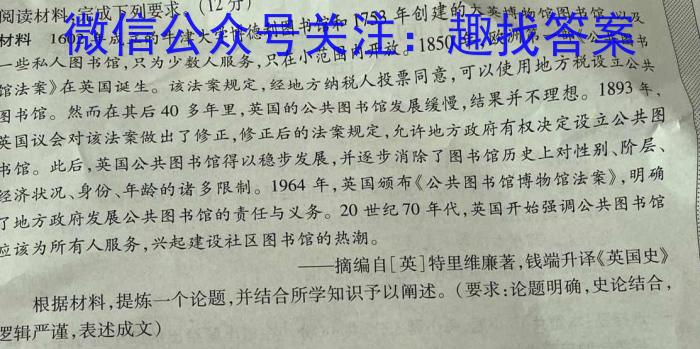 阅读材料,完成下列要求。(12分)
微信公众号关注：趣找答案
材料 160 年成立的牛津大学博德利图书馆和1753年创建的大英博物馆图书馆,以及
一些私人图书馆,只为少数人服务,只在小范围内开放。1850年,欧洲第一部《公共图书
馆法案》在英国诞生。该法案规定,经地方纳税人投票同意,可以使用地方税设立公共
图书馆。然而在其后40多年里,英国的公共图书馆发展缓慢,结果并不理想。1893年,
英国议会对该法案做出了修正,修正后的法案规定,允许地方政府有权决定设立公共图
书馆。此后,英国公共图书馆得以稳步发展,并逐步消除了图书馆历史上对性别、阶层、
经济状况、身份、年龄的诸多限制。1964年,英国颁布《公共图书馆博物馆法案》,明确
了地方政府发展公共图书馆的责任与义务。20世纪70年代,英国开始强调公共图书馆
应该为所有人服务,兴起建设社区图书馆的热潮。
——摘编自[英]特里维廉著,钱端升译《英国史》
根据材料,提炼一个论题,并结合所学知识予以阐述。(要求:论题明确,史论结合,
逻辑严谨,表述成文)